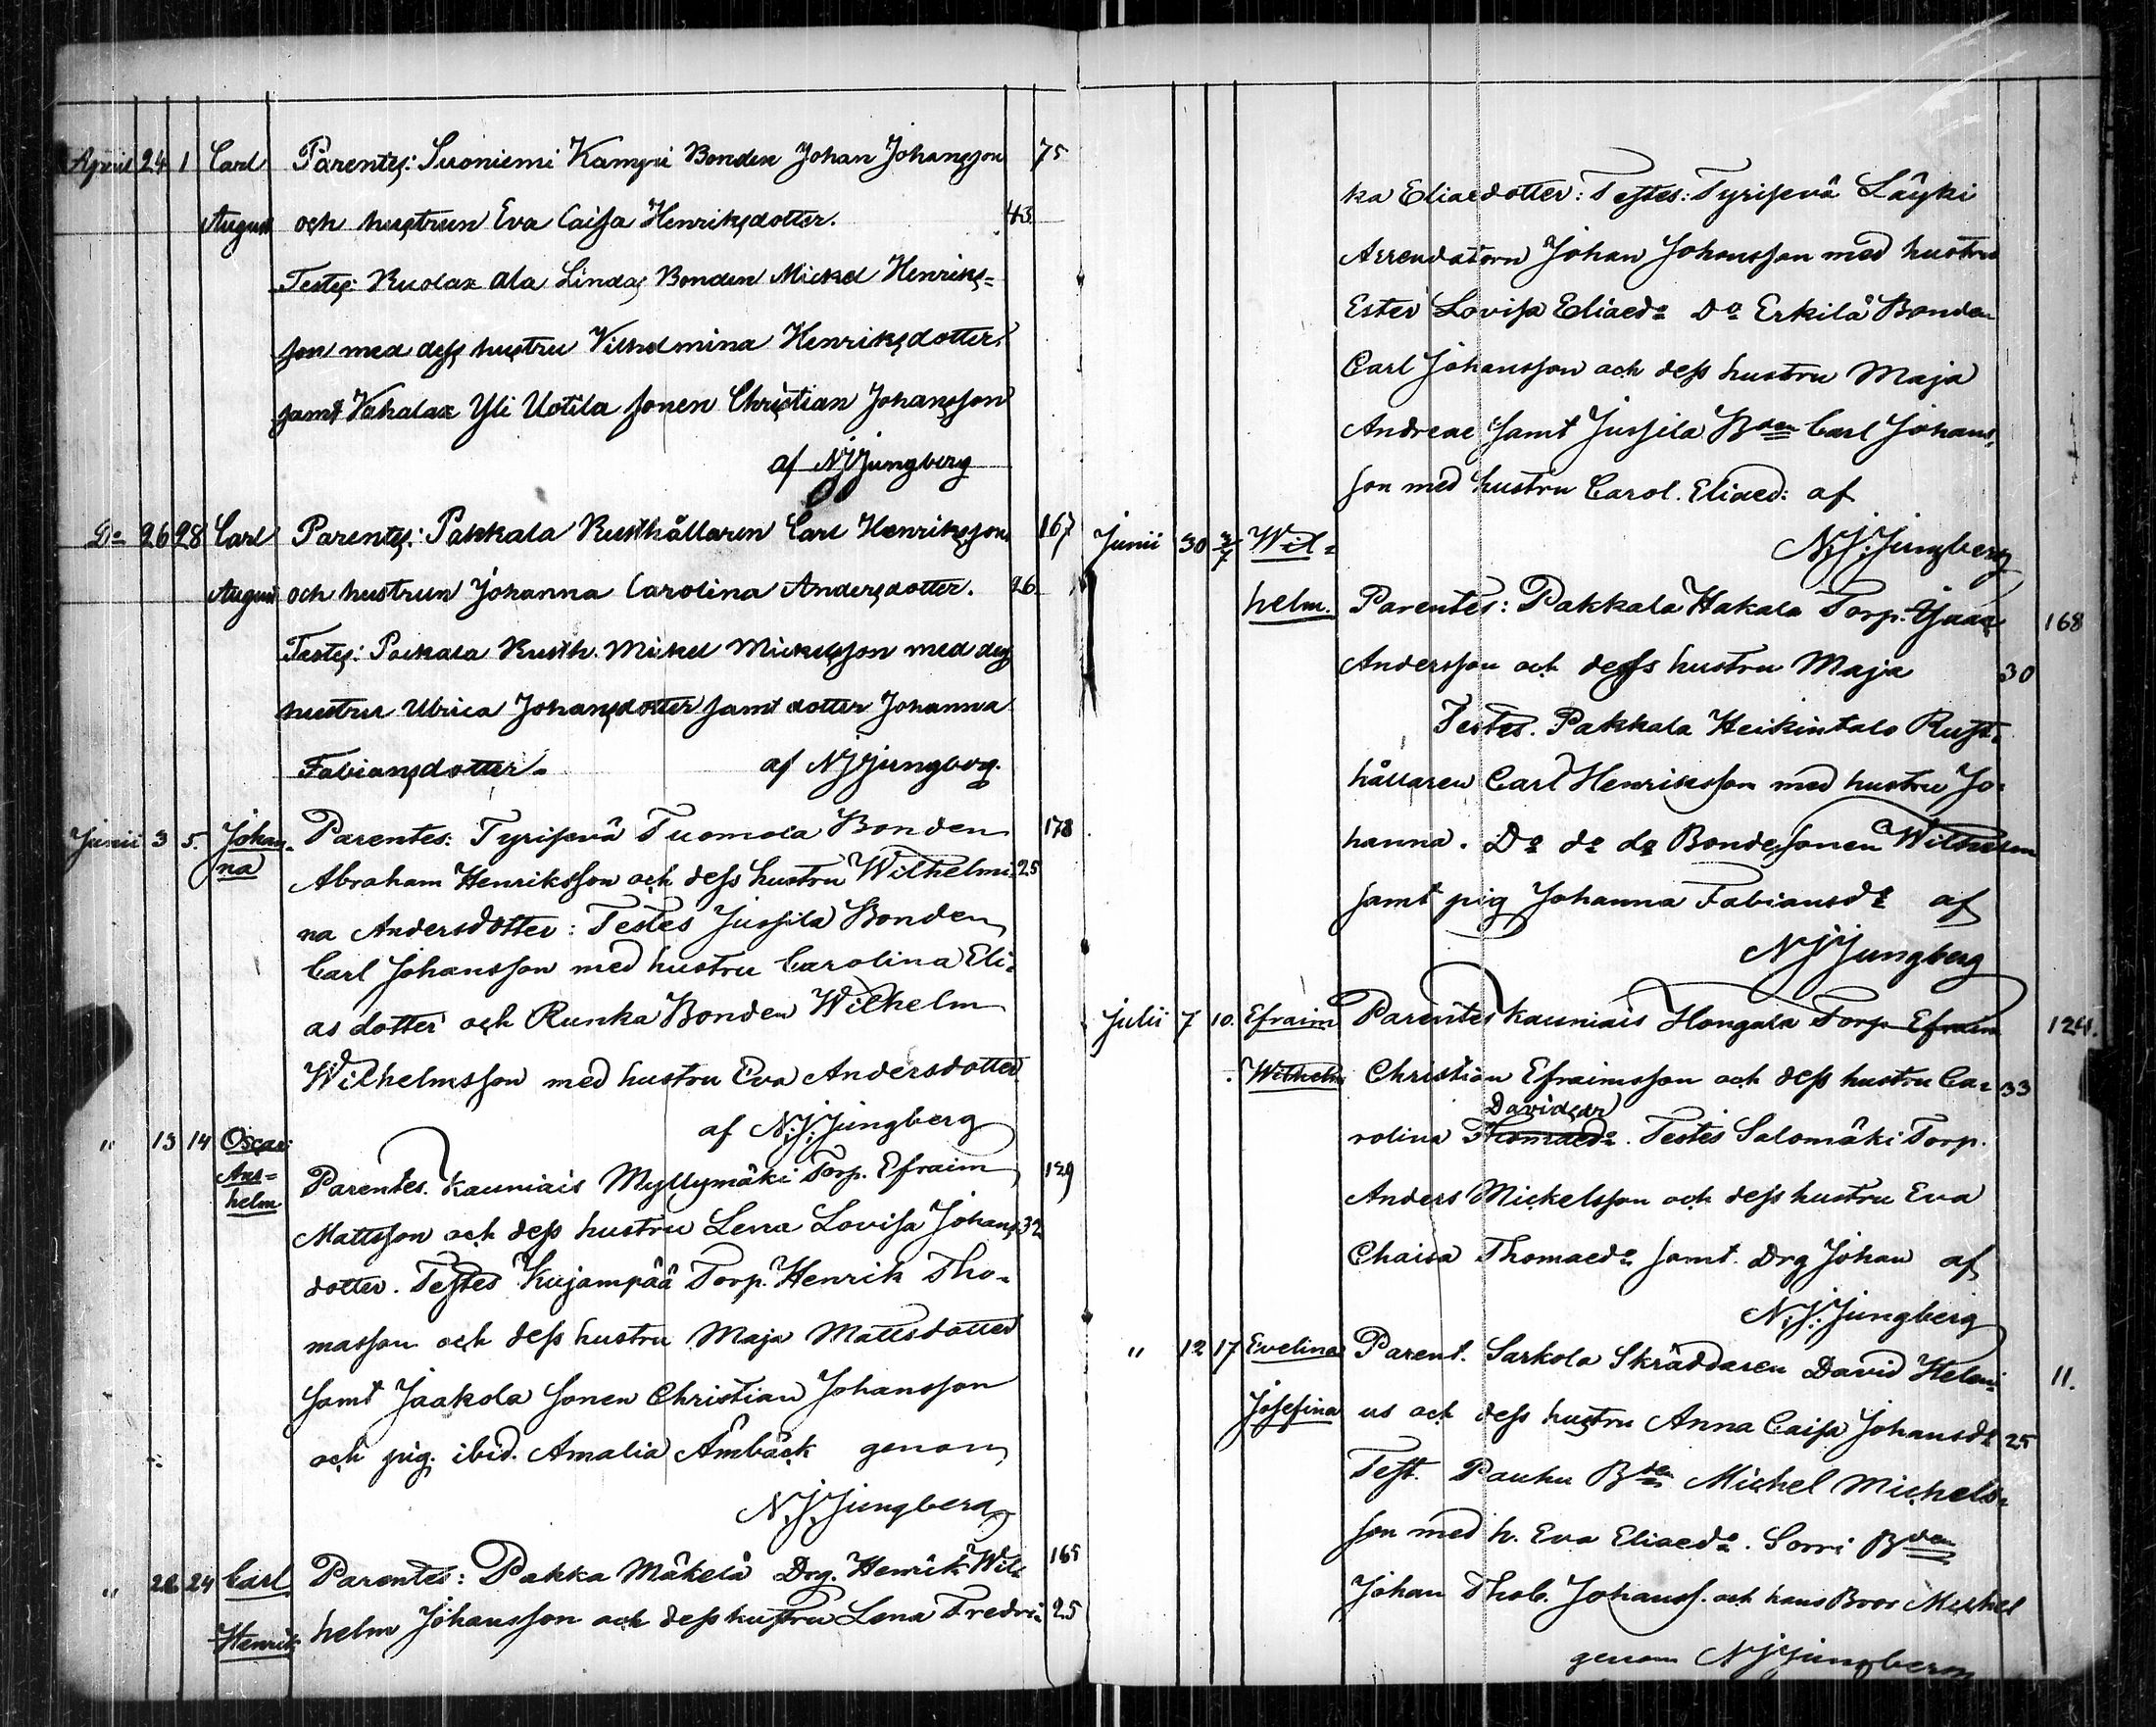 April 24 1 Carl Parentes: Suoniemi Kamppi Bonden Johan Johansson 75
August och hustrun Eva Caisa Henriksdotter. 43
Testes: Ruolax Ala Linda Bonden Mickel Henriks-
son med dess hustru Vilhelmina Henriksdotter
samt Vahalax Yli Uotila sonen Christian Johansson
af NJJungberg
Do 26 28 Carl Parentes: Pakkala Rusthållaren Carl Henriksson 167
August och hustrun Johanna Carolina Andersdotter. 26
Testes: Packala Rusth. Mickel Mickelsson med dess
hustru Ulrica Johansdotter samt dotter Johanna
Fabiansdotter. af NJJungberg.
Junii 3 5. Johan- Parentes: Tyrisevä Tuomola Bonden 178
na Abraham Henriksson och dess hustru Wilhelmi- 25
na Andersdotter: Testes Jussila Bonden
Carl Johansson med hustru Carolina Eli-
as dotter och Runka Bonden Wilhelm
Wilhelmsson med hustru Eva Andersdotter
af N.J.Jungberg
" 13 14 Oscar
Ans-
helm Parentes. Kauniais Myllymäki Torp. Efraim 129
Mattsson och dess hustru Lena Lovisa Johans 32
dotter. Testes Kujampää Torp. Henrik Tho-
masson och dess hustru Maja Mattsdotter
samt Jaakola sonen Christian Johansson
och pig. ibid. Amalia Åmbäck genom
N.J.Jungberg
" 22 24 Carl Parentes: Pakka Mäkelä Drg. Henrik Wil- 165
Henrik helm Johansson och dess hustru Lena Fredri- 25
ka Eliaedotter: Testes: Tyrisevä Läyki
Arrendatorn Johan Johansson med hustru
Ester Lovisa Eliaedr Do Erkilä Bonden
Carl Johansson och dess hustru Maja
Andreae samt Jussila Bden Carl Johans-
son med hustru Carol. Eliaed: af
N.J.Jungberg
Junii 30 3/7 Wil-
helm. Parentes: Pakkala Hakala Torp. Isaac 168
Andersson och dess hustru Maja 30
Testes. Pakkala Heikintalo Rust-
hållaren Carl Henriksson med hustru Jo-
hanna. Do do do Bondesonen Wilhelm
samt pig Johanna Fabiansdr af
NJJungberg
Julii 7 10. Efraim Parentes Kauniais Hongala Torp Efraim 124.
Wilhelm Christian Efraimsson och dess hustru Ca- 33
Davidsdr
rolina Thomaedr. Testes Salomäki Torp.
Anders Mickelsson och dess hustru Eva
Chaisa Thomaedr samt Drg Johan af
N.J.Jungberg
" 12 17 Evelina Parent. Sarkola Skräddaren David Heleni- 11.
Josefina us och dess hustru Anna Caisa Johansdr 25
Test. Pauhu Bden Michel Michels-
son med h. Eva Eliaedr. Sorri Bden
Johan Thob. Johanss. och hans Bror Michel
genom NJJungberg